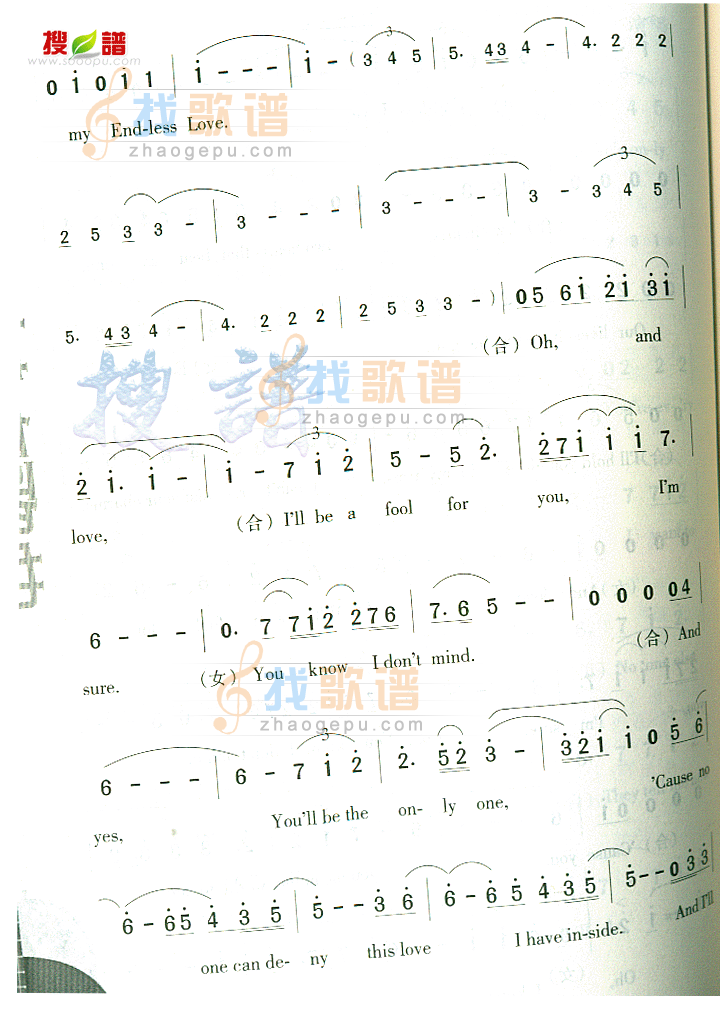 搜谱
www.sooopu.com
0 i 0 i 1 | i - - - | i - ( 3 4 5 | 5. 43 4 - | 4. 2 2 2 |
my End-less Love.
找歌谱
zhaogepu.com
2 5 3 3 - | 3 - - - | 3 - - - | 3 - 3 4 5 |
5. 43 4 - | 4. 2 2 2 | 2 5 3 3 - ) | 05 6i 2i 3i |
(合) Oh, and
搜譜
找歌谱
zhaogepu.com
2 i. i - | i - 7 i 2 | 5 - 5 2. | 27i i i 7. |
love, (合) I'll be a fool for you, I'm
6 - - - | 0. 7 7i2 276 | 7. 6 5 - - | 0 0 0 04 |
sure. (女) You know I don't mind. (合) And
找歌谱
zhaogepu.com
6 - - - | 6 - 7 i 2 | 2. 52 3 - | 32i i 0 5 6 |
yes, You'll be the on- ly one, 'Cause no
6 - 65 4 3 5 | 5 - - 3 6 | 6 - 6 5 4 3 5 | 5 - - 0 3 3 |
one can de- ny this love I have in-side. And I'll